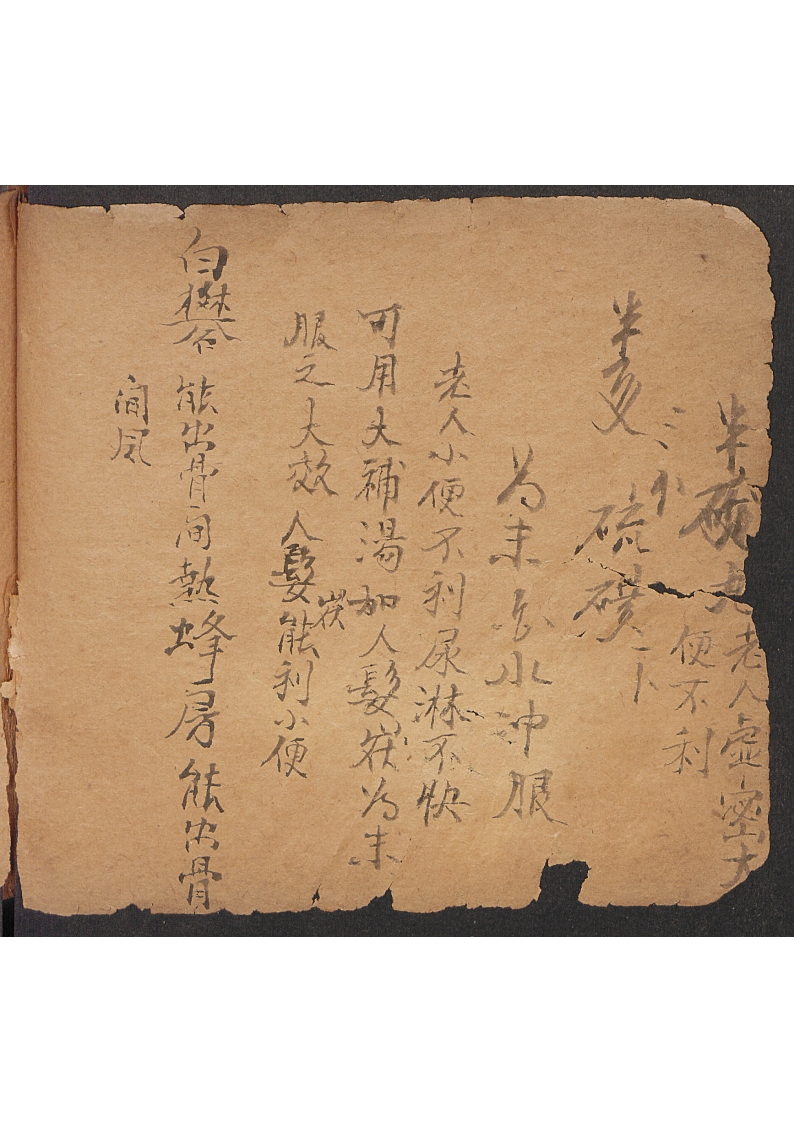 半硫丸老人虛密大
便不利
半夏三个硫磺一个
为末 水冲服
老人小便不利尿淋不快
可用大補湯加人髮炭为末
服之大效人髮炭能利小便
白礬 能出骨间熱蜂房能出骨
间风